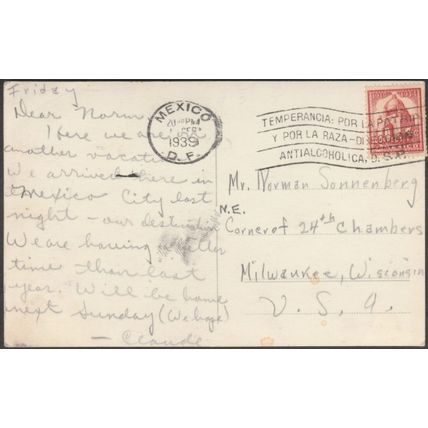 Friday
Dear Norm
Here we are on
another vacation
We arrived here in
Mexico City last
night - our destination
We are having a better
time than last
year. Will be home
next Sunday (We hope)
- Claude
MEXICO
1939
D. F.
TEMPERANCIA: POR LA PATRIA
Y POR LA RAZA-
ANTIALCOHOLICA, D.S.P.
Mr. Norman Sonnenberg
N.E.
Corner of 24th Chambers
Milwaukee, Wisconsin
U. S. A.